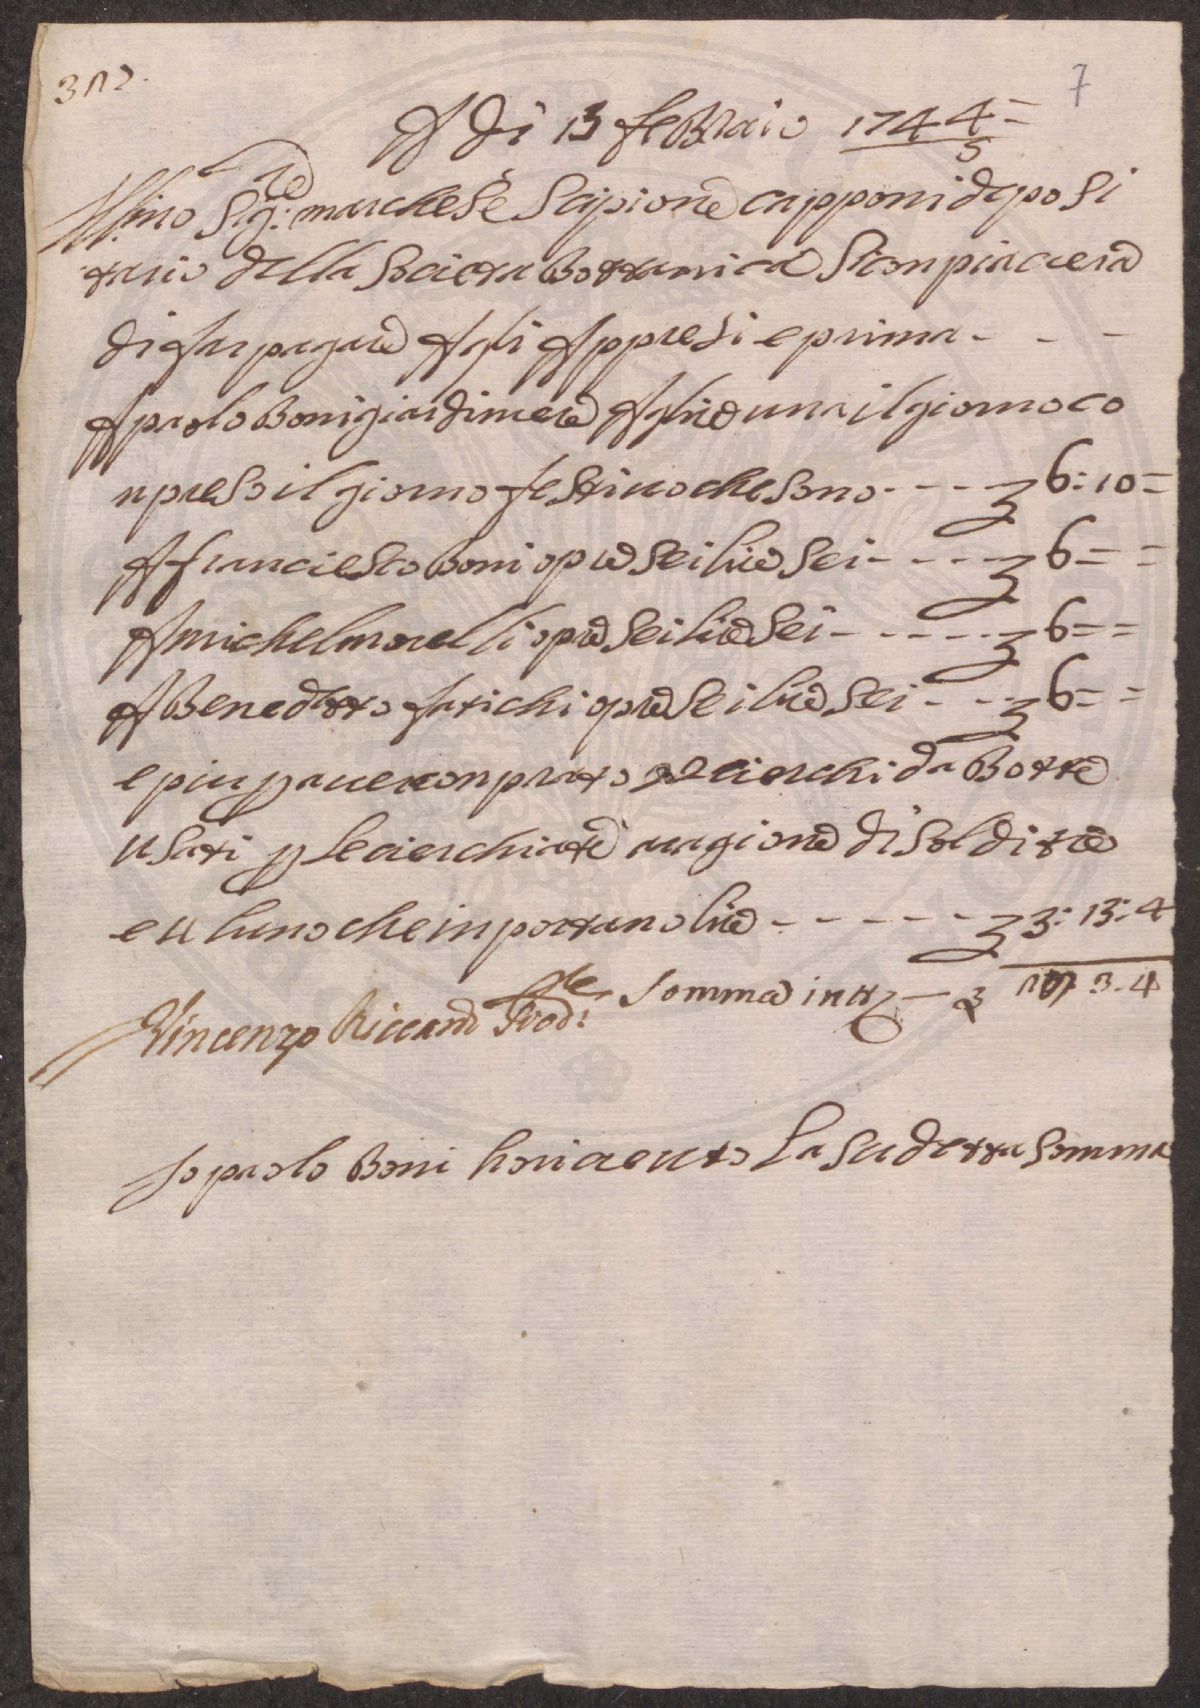 7
A di 13 feBBraio 1744=
5
Ill:mo Sig:re marchese Scipione capponi deposi
tario della Societa Bottanica Si conpiacera
di far pagare Agli Appresi e prima - - -
A paolo Boni giardiniere A lire una il giorno co
npreso il giorno festivo che sono - - - £ 6: 10 =
A franciesco Boni opre sei lire sei - - - - £ 6 = =
A michel morelli opre sei lire sei - - - - - £ 6 = =
A Benedetto fatichi opre sei lire sei - - - £ 6 = =
e piu p aver conprato cierchi da Botte
usati p le cierchiate a ragione di soldi tre
e u luno che inportano lire - - - - - - £ 3: 13: 4
Somma in tt° — £ 3 - 4
Vincenzo Riccardi Prov:re
Io paolo Boni ho riceuto La sudetta somma